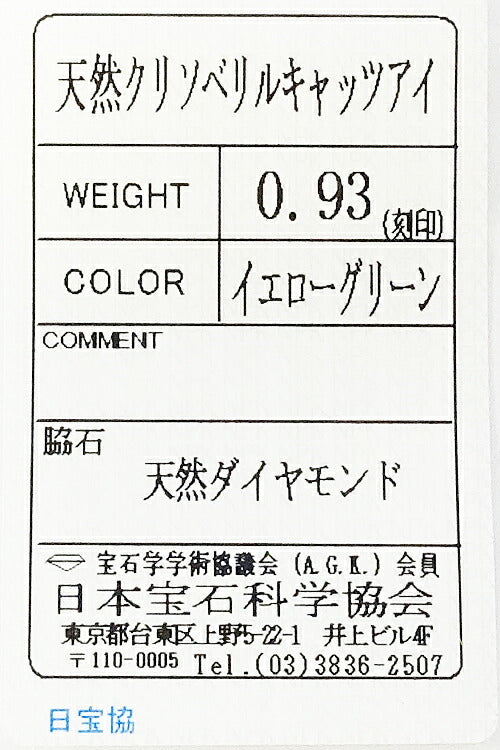 天然クリソベリルキャッツアイ
WEIGHT 0.93 (刻印)
COLOR イエローグリーン
COMMENT
脇石
天然ダイヤモンド
宝石学学術協議会 (A.G.K.) 会員
日本宝石科学協会
東京都台東区上野5-22-1 井上ビル4F
〒110-0005 Tel.(03)3836-2507
日宝協